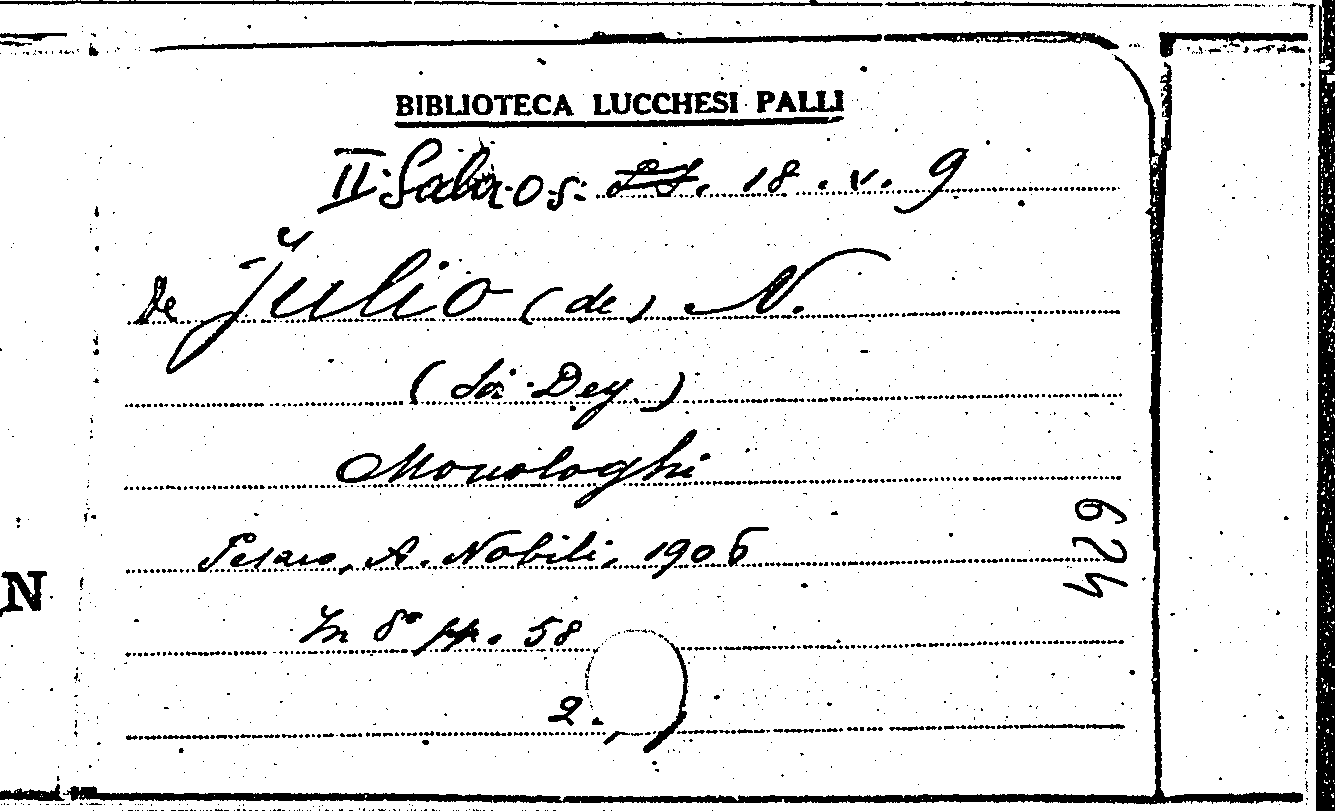 BIBLIOTECA LUCCHESI PALLI
II. Sala. O.S. 18. v. 9
De Julio (de) N.
(Dey)
Monologhi
Pesaro, A. Nobili, 1905
In 8° pp. 58
2.
429
N